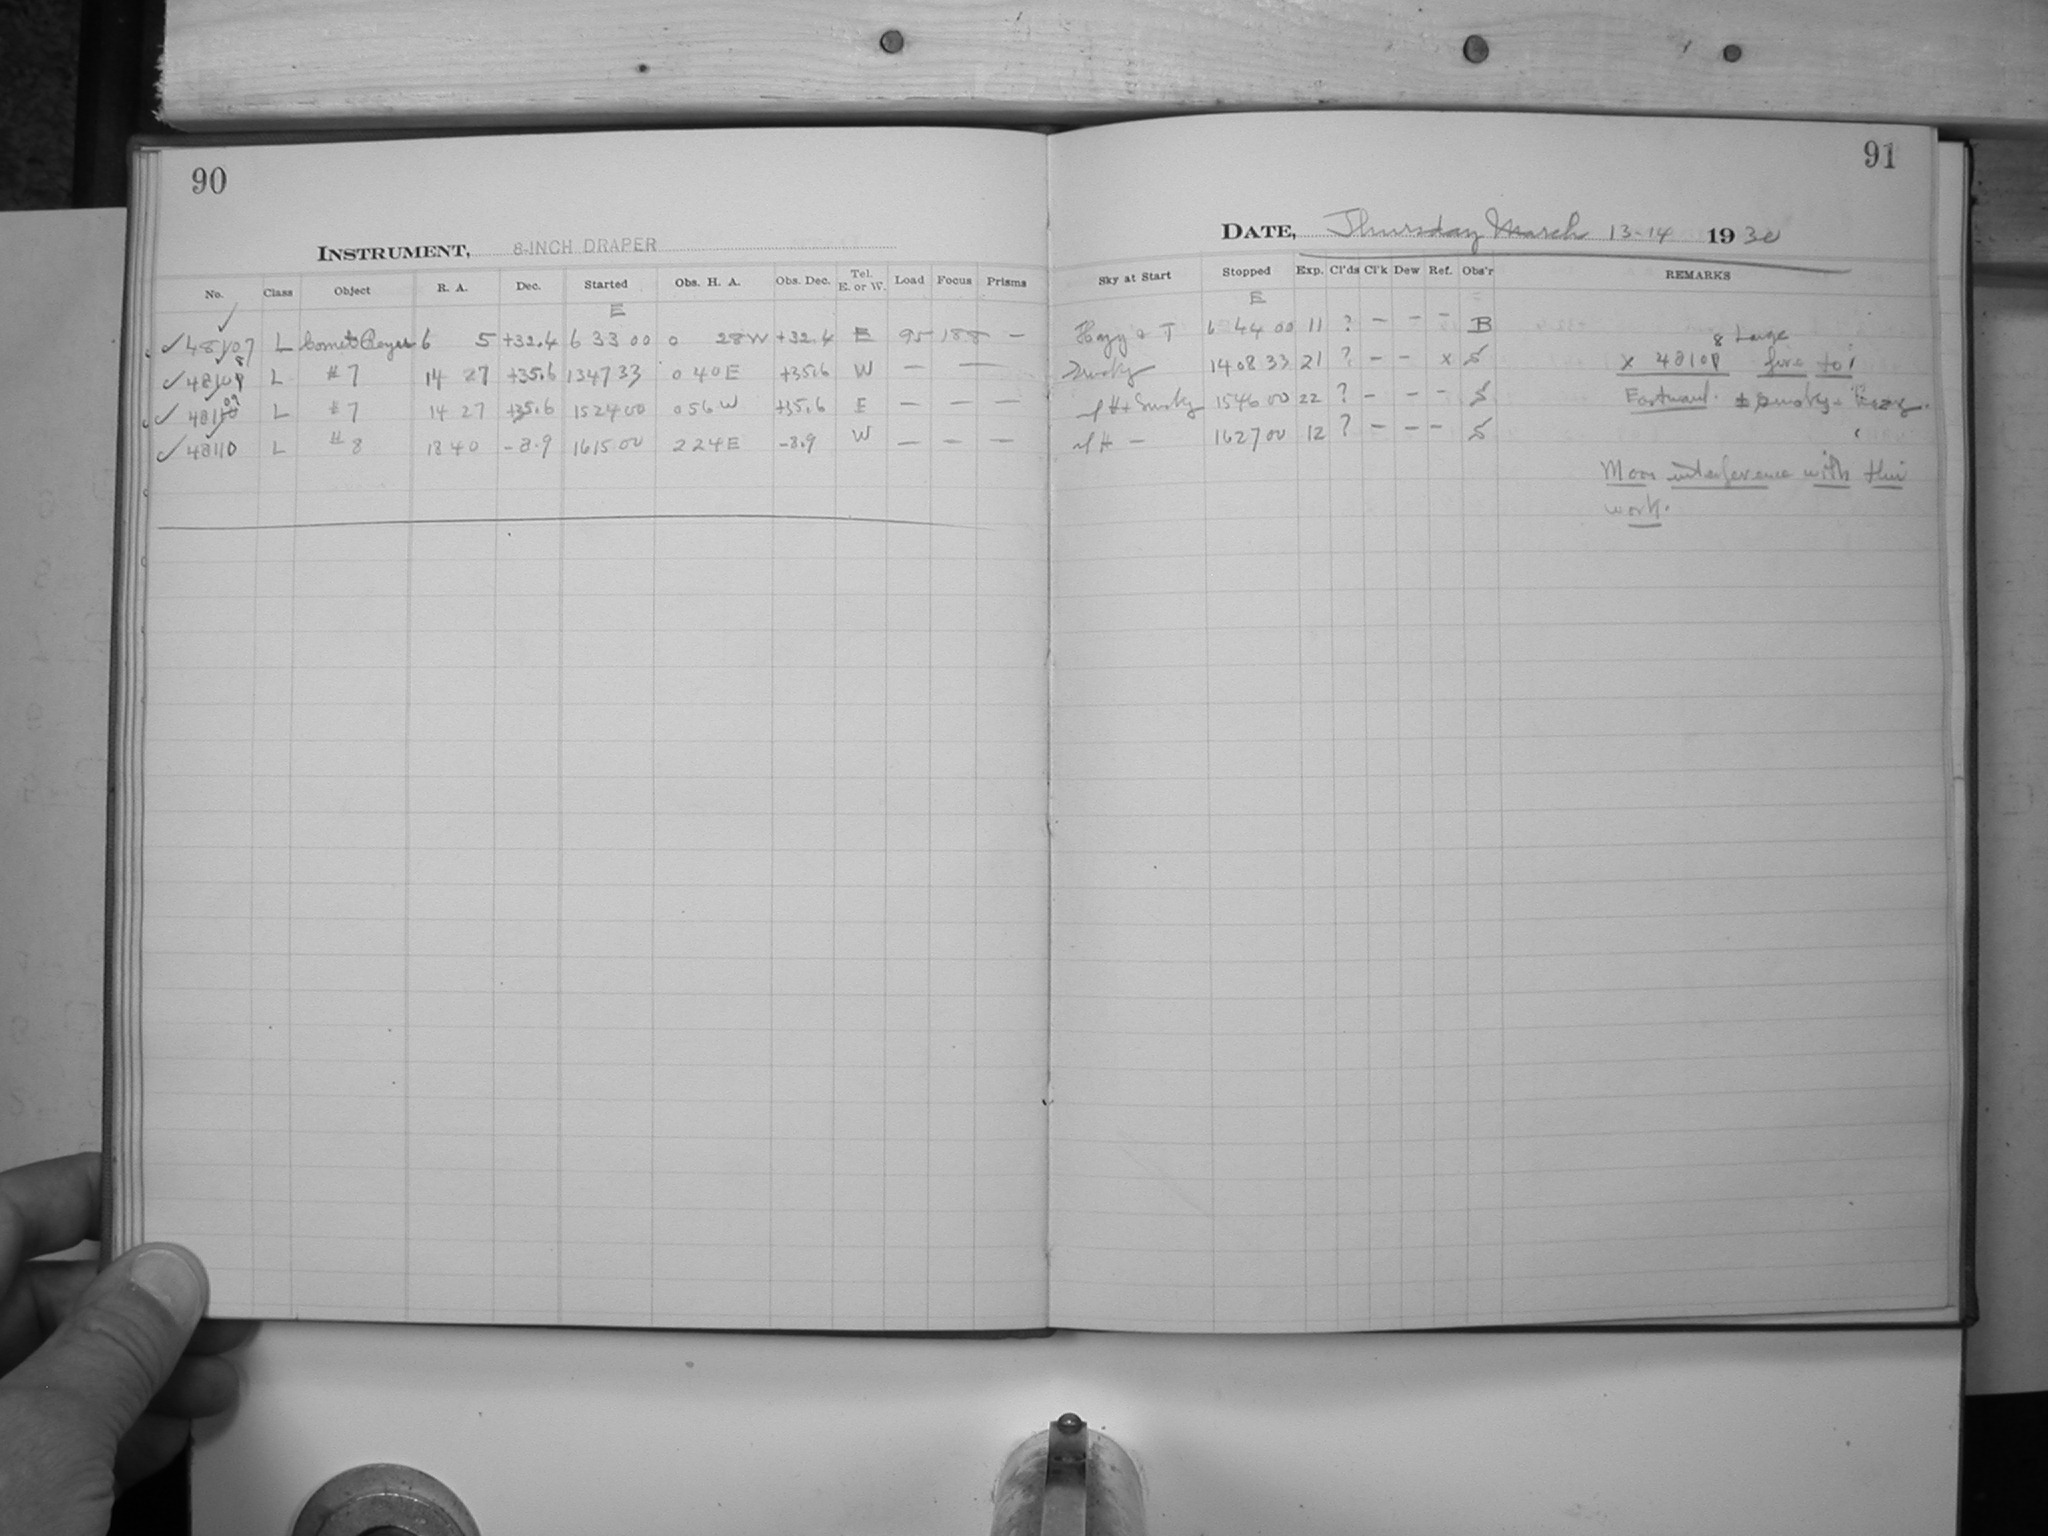 90
INSTRUMENT, 8-INCH DRAPER
No. Class Object R. A. Dec. Started Obs. H. A. Obs. Dec. Tel. E. or W. Load Focus Prisms
E
48107 L Comet 6 5 +32.4 6 33 00 0 28 W +32.4 E 95 188 —
48108 L #7 14 27 +35.6 13 47 33 0 40 E +35.6 W — —
48109 L #7 14 27 +35.6 15 24 00 0 56 W +35.6 E — — —
48110 L #8 18 40 -8.9 16 15 00 2 24 E -8.9 W — — —
91
DATE, Thursday March 13-14 1930
Sky at Start Stopped Exp. Cl'ds Cl'k Dew Ref. Obs'r REMARKS
E
Hazy & T 6 44 00 11 ? — — — B
Smoky 14 08 33 21 ? — — x S x 48108 Large fire to
H + Smoky 15 46 00 22 ? — — — S Eastward. ± smoky + Hazy.
H — 16 27 00 12 ? — — — S
Moon interference with this
work.